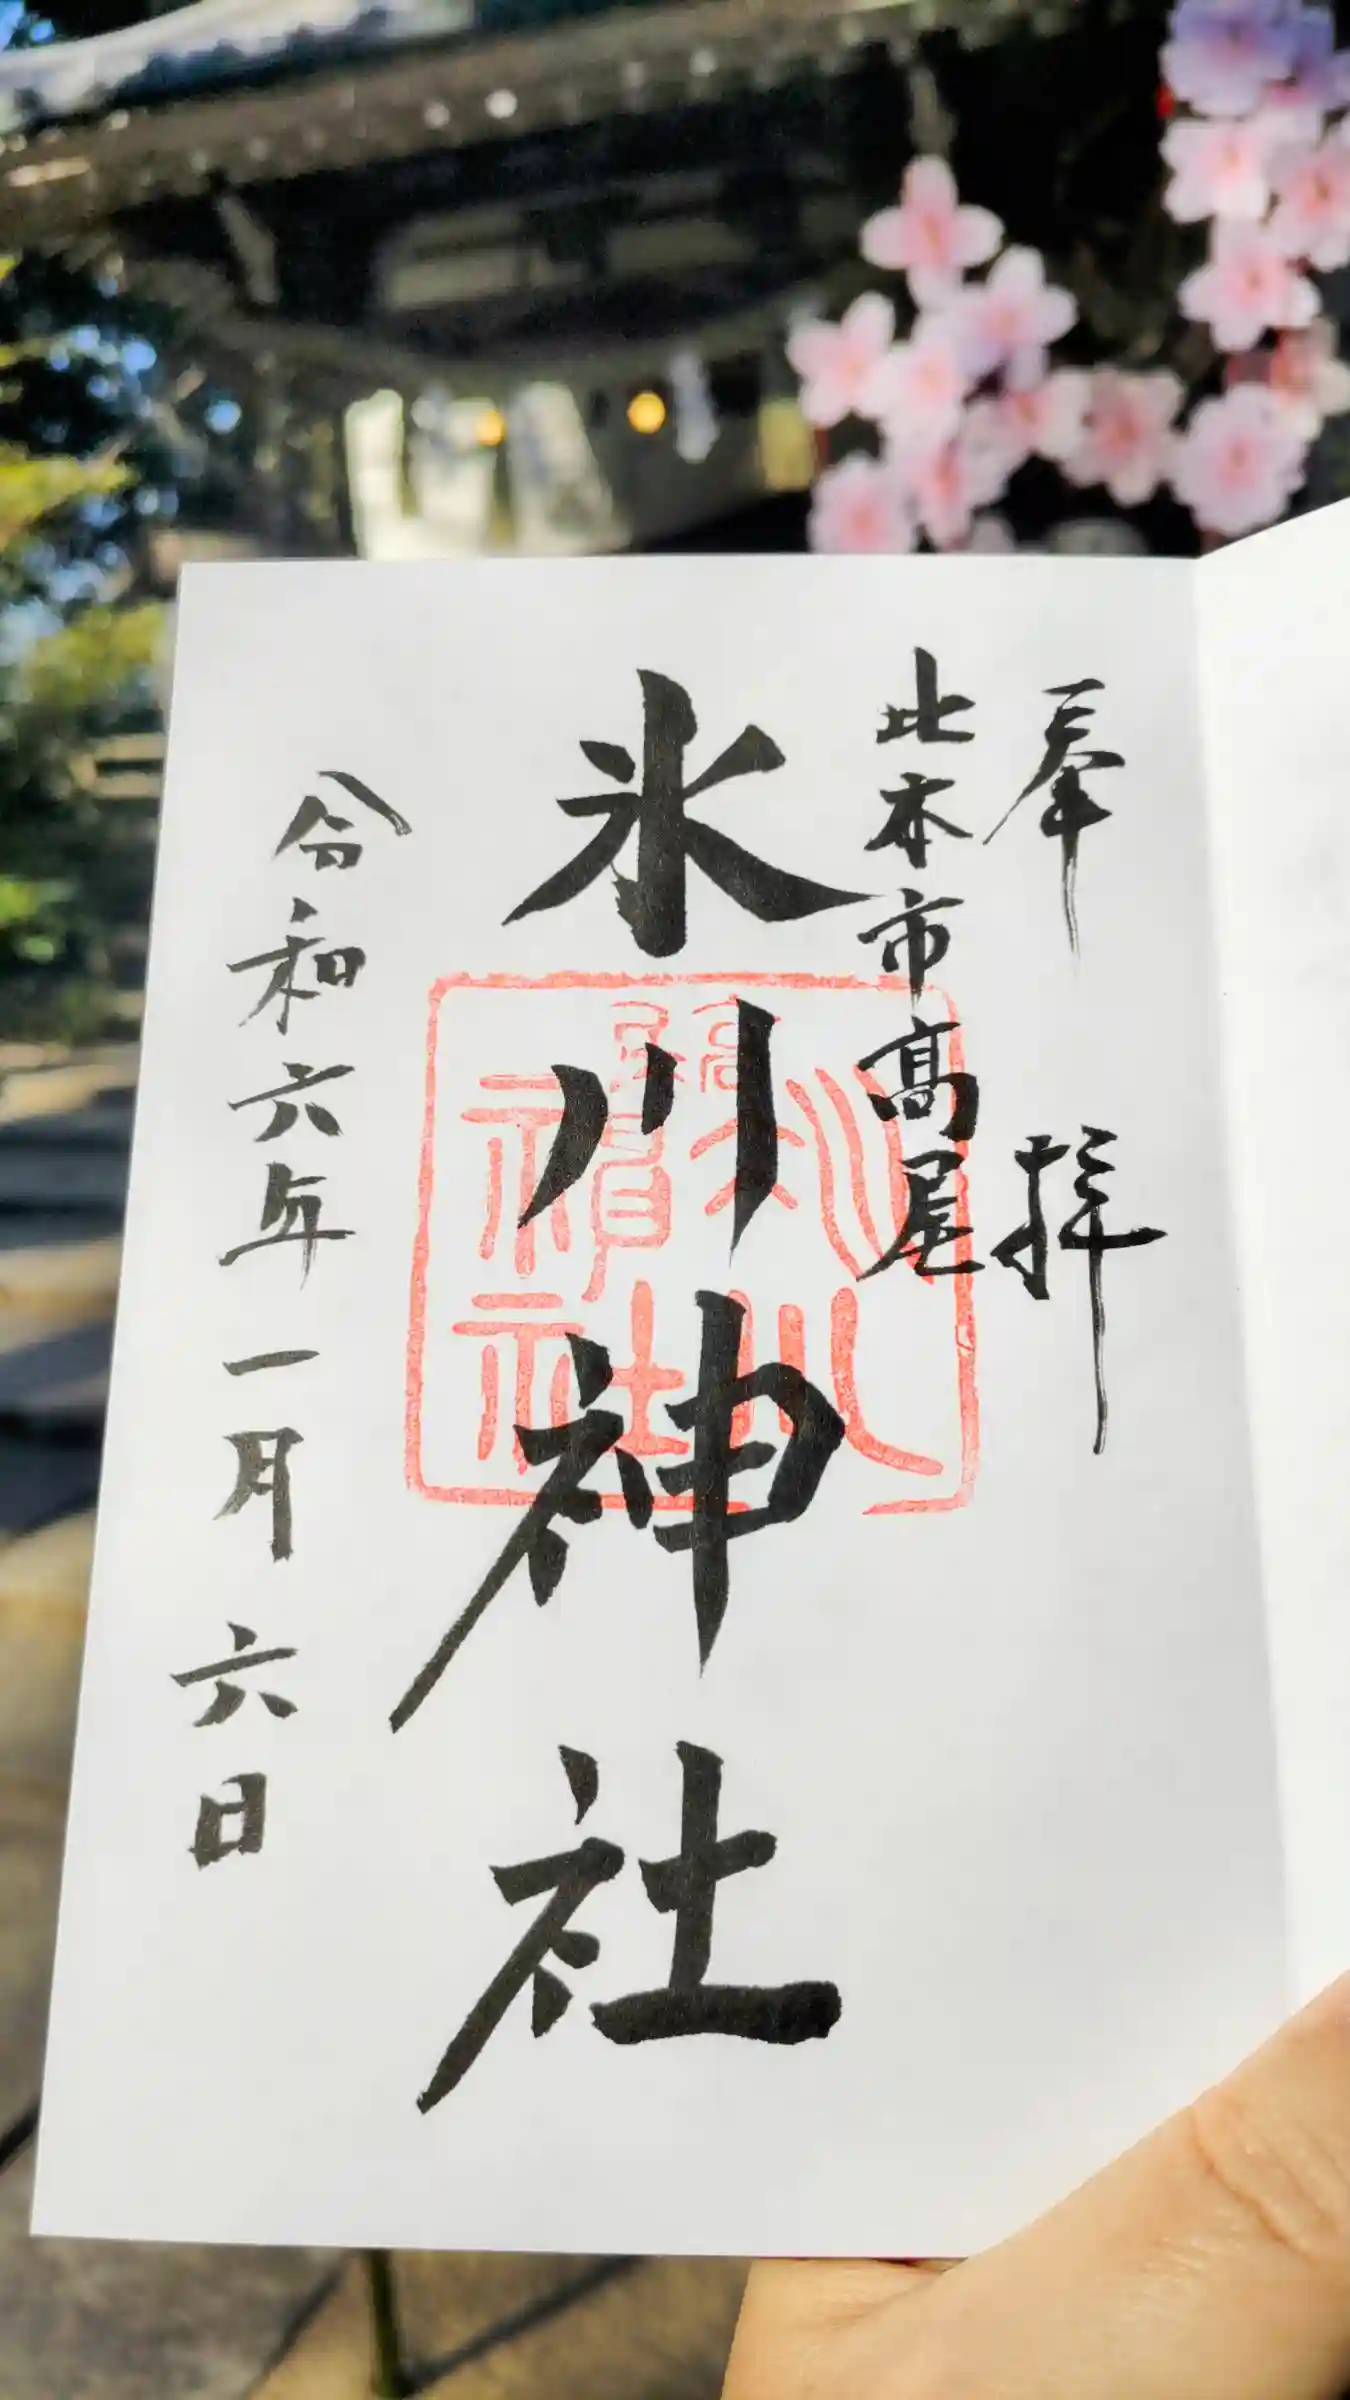 奉拝
北本市高尾
氷川神社
高尾
氷川
神社
令和六年一月六日